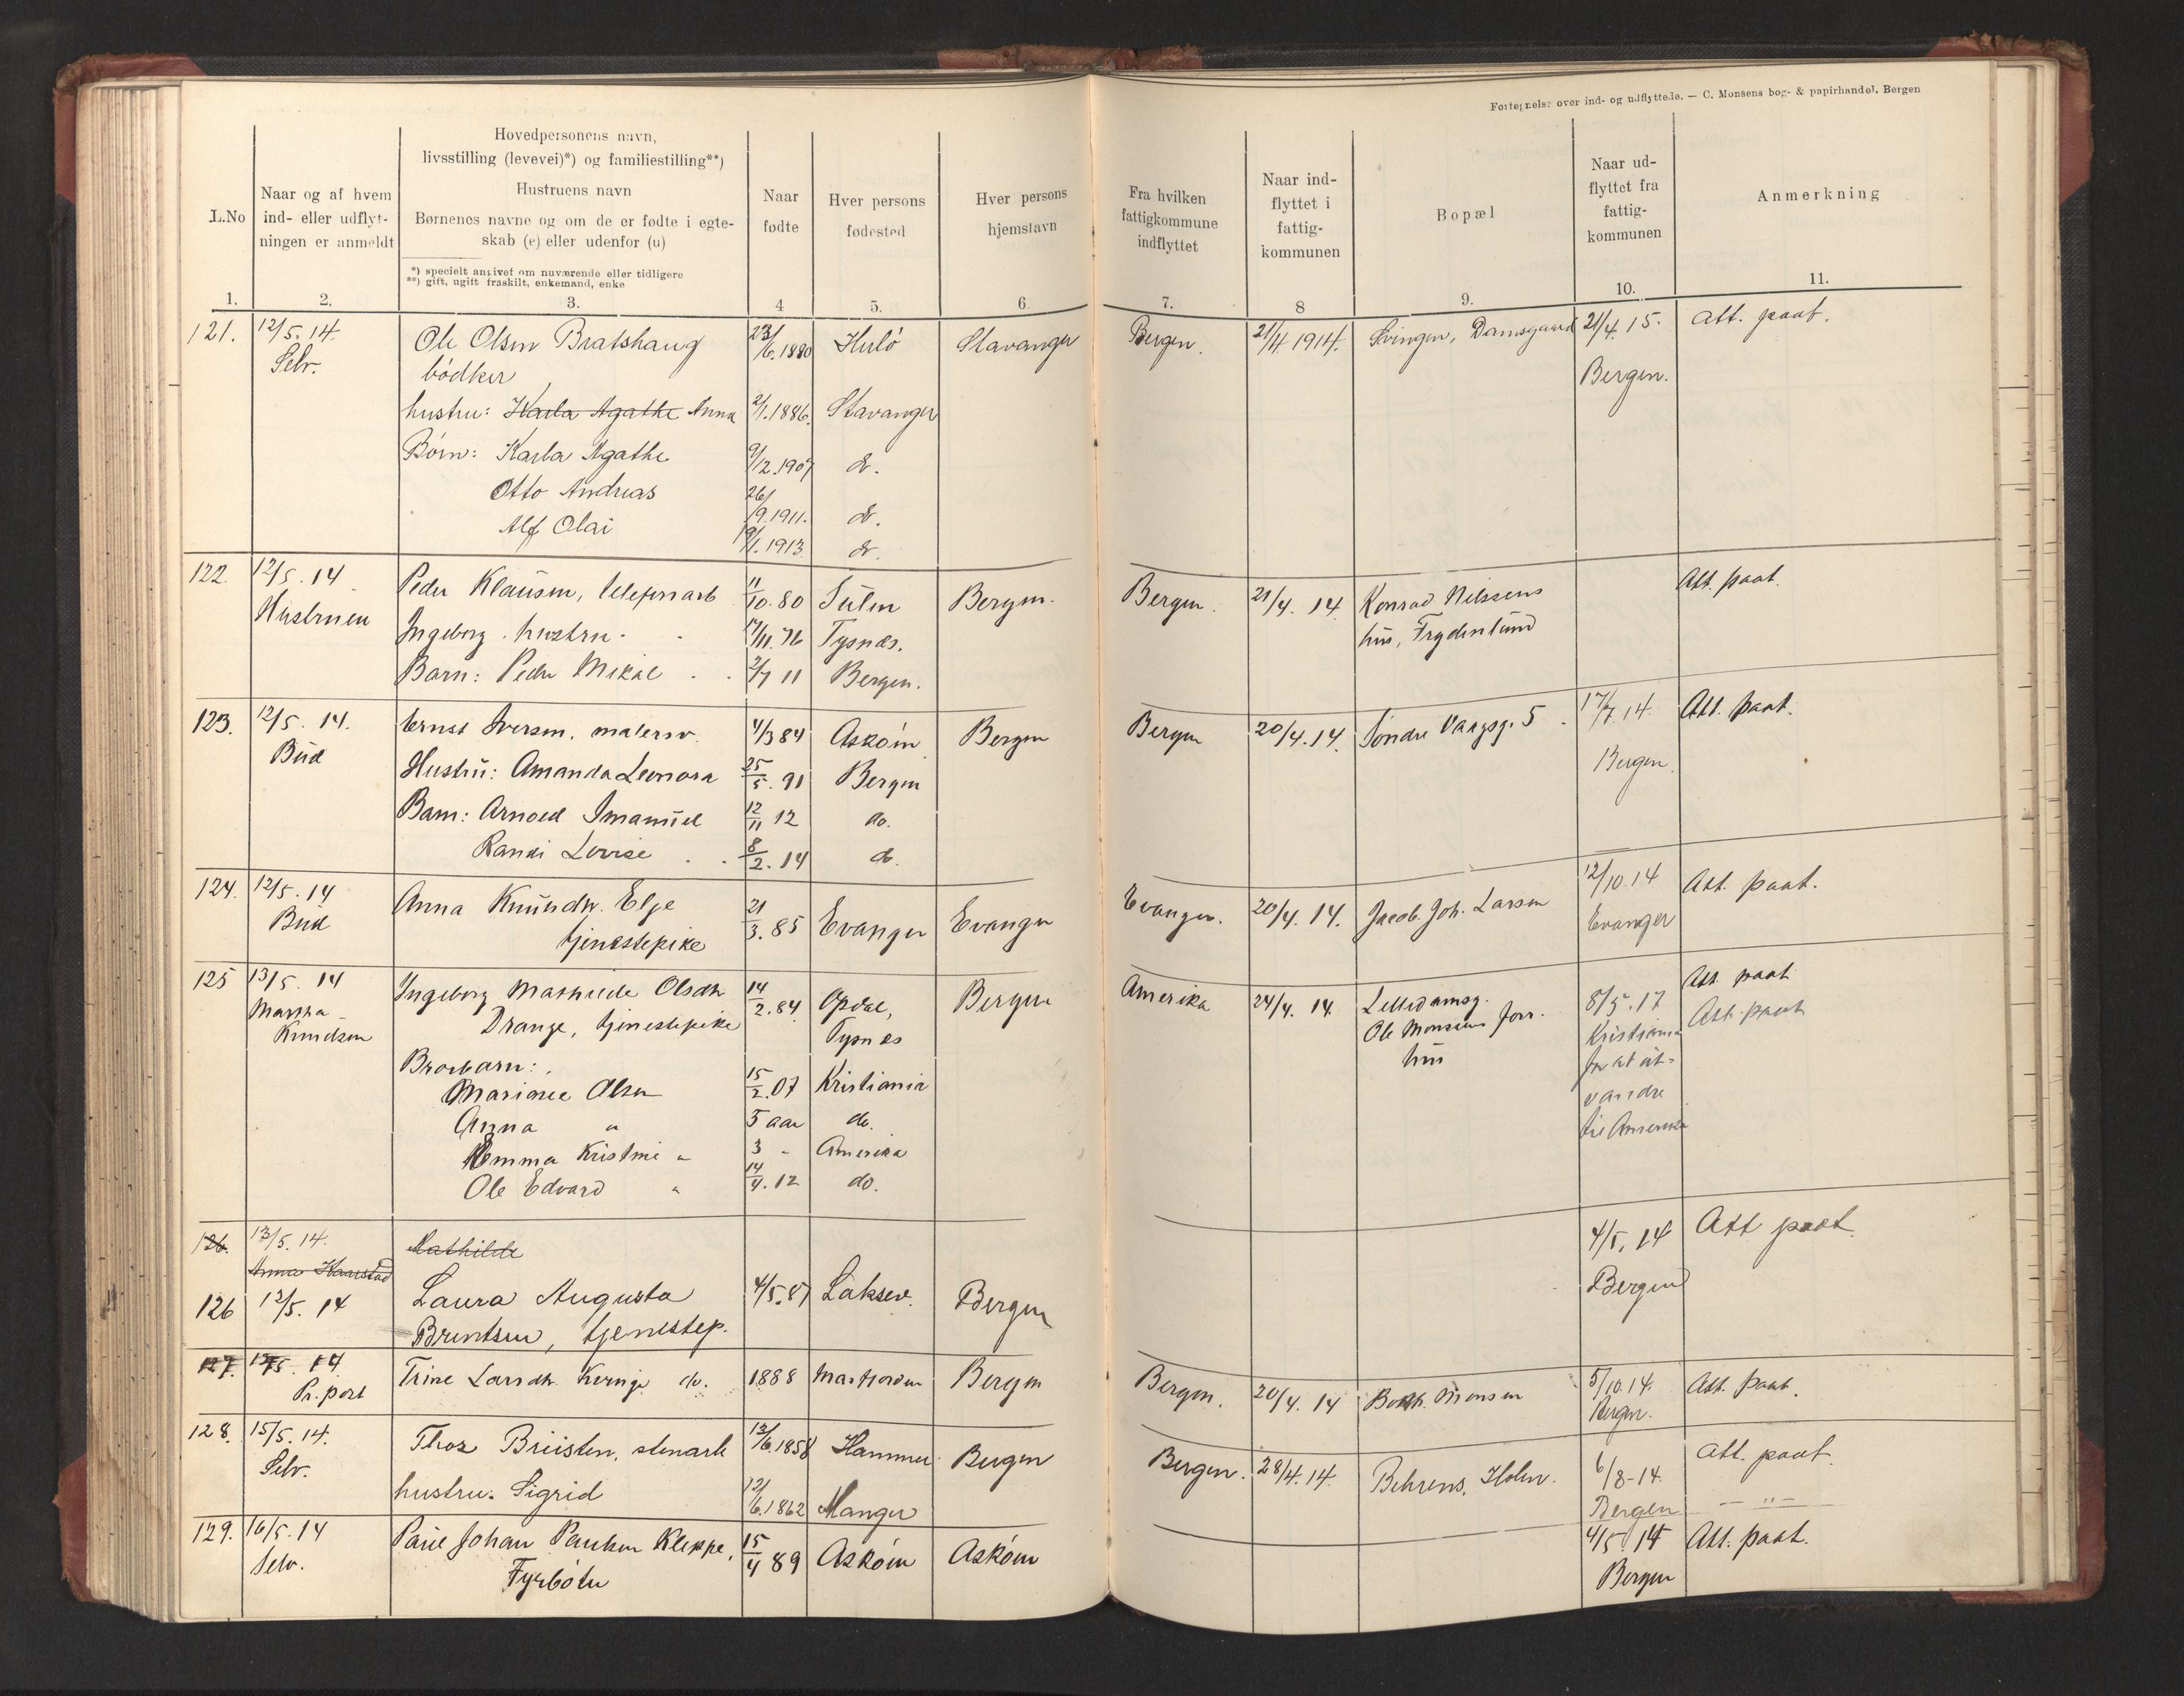 Fortegnelse over ind- og udflyttede. — C. Monsens bog- & papirhandel. Bergen
L.No
1.
Naar og af hvem
ind- eller udflyt-
ningen er anmeldt
2.
Hovedpersonens navn,
livsstilling (levevei)*) og familiestilling**)
Hustruens navn
Børnenes navne og om de er fødte i egte-
skab (e) eller udenfor (u)
*) specielt angivet om nuværende eller tidligere
**) gift, ugift fraskilt, enkemand, enke
3.
Naar
fødte
4
Hver persons
fødested
5.
Hver persons
hjemstavn
6.
Fra hvilken
fattigkommune
indflyttet
7.
Naar ind-
flyttet i
fattig-
kommunen
8
Bopæl
9.
Naar ud-
flyttet fra
fattig-
kommunen
10.
Anmerkning
11.
121. 12/5. 14. Ole Olsen Bratshaug 23/6. 1880 Herlö Stavanger Bergen. 21/4 1914. Svingen, Damsgaard 21/4. 15. Att. paat.
Selv. bödker Bergen.
hustru: Karla Agathe Anna 2/1. 1886. Stavanger
Børn: Karla Agathe 9/12. 1907 do.
Otto Andreas 26/9. 1911. do.
Alf Olai 19/1. 1913. do.
122. 12/5. 14 Peder Klausen, telefonarb 11/10. 80 Sulen Bergen. Bergen. 21/4. 14 Konrad Nilssens Att. paat.
Hustruen Ingeborg. hustru. 17/11. 76 Tysnæs. hus, Frydenlund
Barn: Peder Mikal 2/7 11 Bergen.
123. 12/5. 14. Ernst Iversen. malersv. 4/3 84 Asköen Bergen Bergen 20/4. 14. Söndre Vaagsg. 5 17/7. 14. Att. paat.
Bud Hustru: Amanda Leonora 25/5. 91 Bergen Bergen.
Barn: Arnold Imanuel 12/11 12 do.
Randi Lovise 8/2. 14 do.
124. 12/5. 14 Anna Knudsdtr. Elje 21/3. 85 Evanger Evanger Evanger. 20/4. 14. Jacob. Joh. Larsen 12/10. 14 Att. paat.
Bud tjenestepike Evanger
125 13/5. 14 Ingeborg Mathilde Olsdtr 14/2. 84 Opdal, Bergen Amerika 24/4. 14. Lilledamsg. 8/5. 17 Att. paat
Martha Drange, tjenestepike Tysnes Ole Monsens forr. Kristiania Att. paat
Knudsen hus for at ut-
Brorbarn: vandre
Marianne Olsen 15/2. 07 Kristiania til Amerika
Anna " 5 aar do.
Emma Kristine " 3 " Amerika
Ole Edvard " 14/4. 12 do.
126. 13/5. 14. Mathilde 4/5. 14 Att paat.
Anna Haarstad Bergen
126 12/5. 14 Laura Augusta 4/5. 87 Laksev. Bergen
Berntsen, tjenestep.
127. 15/5. 14 Trine Larsdtr. do. 1888 Masfjorden Bergen Bergen. 20/4. 14 Monsen 5/10. 14. Att. paat.
Pr. post Bergen.
128. 15/5. 14. Thos Briisten, stenarb 12/6. 1858 Hammer Bergen Bergen. 28/4. 14. Behrens, Holen. 6/8-14. Att. paat.
Selv. hustru: Sigrid 12/6. 1862 Manger Bergen — " —
129. 16/5. 14 Paul Johan Paulsen Kleppe, 15/4 89 Asköen Asköen 4/5. 14 Att. paat.
Selv. Fyrböter Bergen